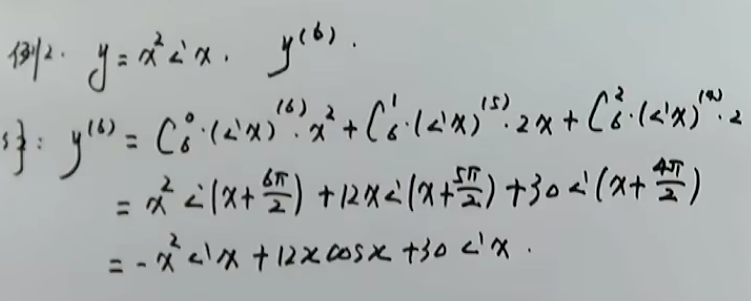 例2. y = x² sin x. y⁽⁶⁾.
解: y⁽⁶⁾ = C₆⁰·(sin x)⁽⁶⁾·x² + C₆¹·(sin x)⁽⁵⁾·2x + C₆²·(sin x)⁽⁴⁾·2
= x² sin(x + 6π/2) + 12x sin(x + 5π/2) + 30 sin(x + 4π/2)
= -x² sin x + 12x cos x + 30 sin x.